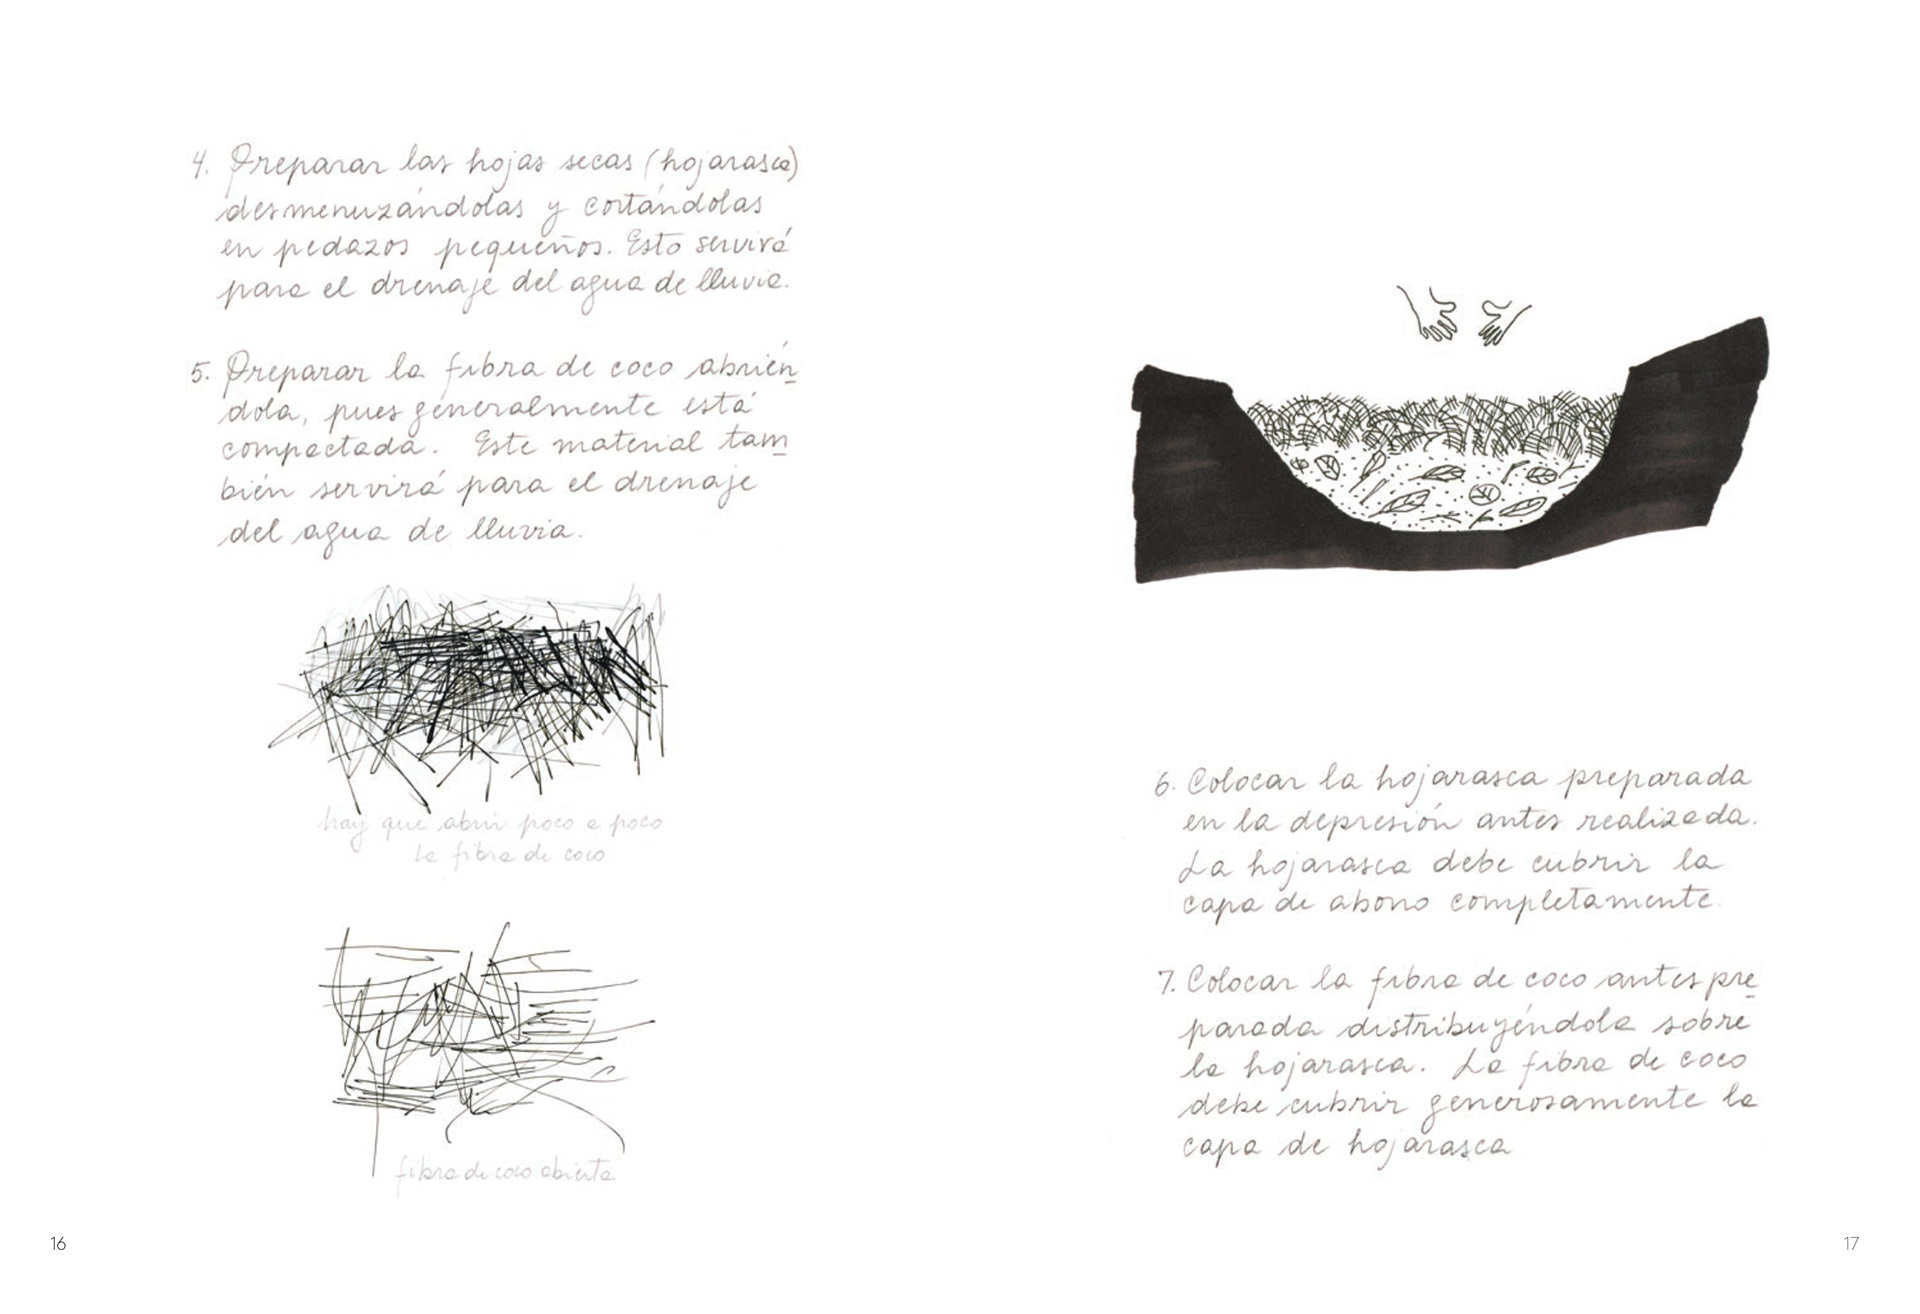 4. Preparar las hojas secas (hojarasca)
desmenuzándolas y cortándolas
en pedazos pequeños. Esto servirá
para el drenaje del agua de lluvia.
5. Preparar la fibra de coco abrién
dola, pues generalmente está
compactada. Este material tam
bién servirá para el drenaje
del agua de lluvia.
hay que abrir poco a poco
la fibra de coco
fibra de coco abierta
16
6. Colocar la hojarasca preparada
en la depresión antes realizada.
La hojarasca debe cubrir la
capa de abono completamente.
7. Colocar la fibra de coco antes pre
parada distribuyéndola sobre
la hojarasca. La fibra de coco
debe cubrir generosamente la
capa de hojarasca
17